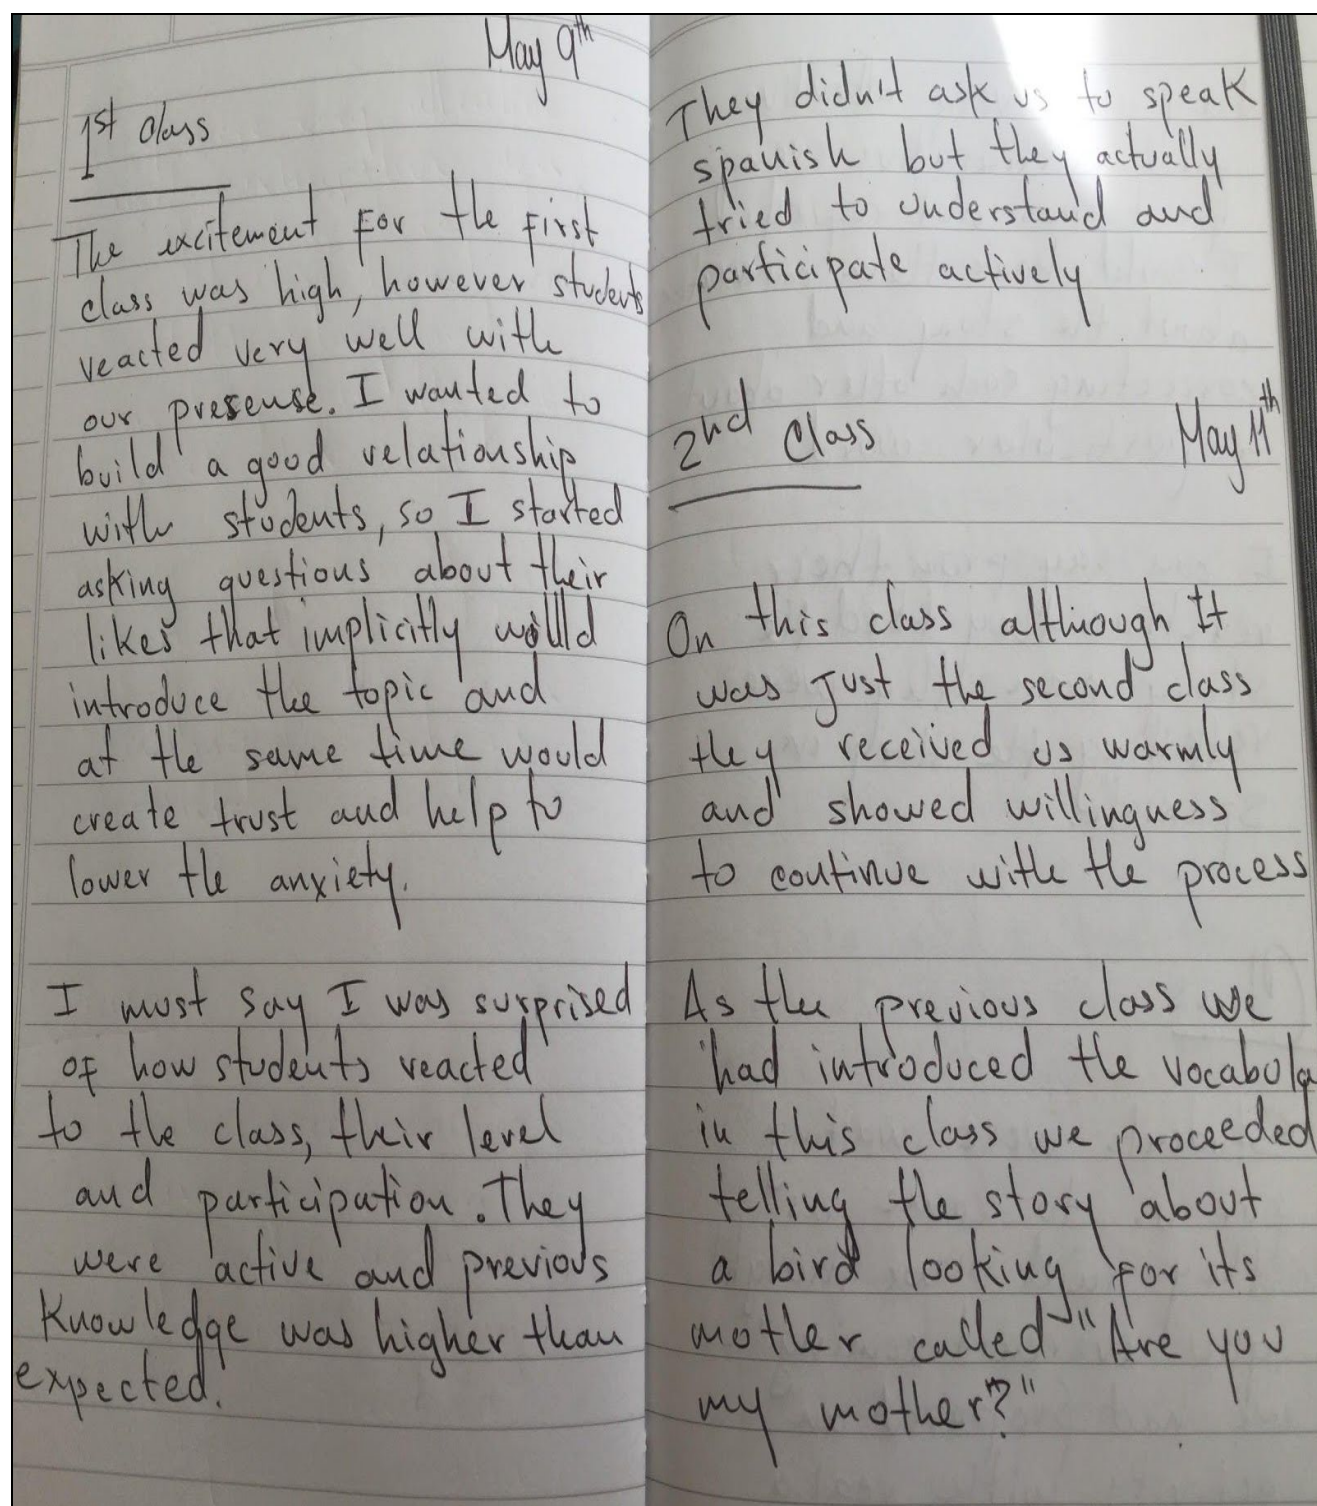 May 9th
1st class
The excitement for the first
class was high, however students
reacted very well with
our presense. I wanted to
build a good relationship
with students, so I started
asking questions about their
likes that implicitly would
introduce the topic and
at the same time would
create trust and help to
lower the anxiety.
I must say I was surprised
of how students reacted
to the class, their level
and participation. They
were active and previous
knowledge was higher than
expected.
They didn't ask us to speak
spanish but they actually
tried to understand and
participate actively
2nd Class May 11th
On this class although It
was just the second class
they received us warmly
and showed willingness
to continue with the process
As the previous class we
had introduced the vocabula
in this class we proceeded
telling the story about
a bird looking for its
mother called "Are you
my mother?"